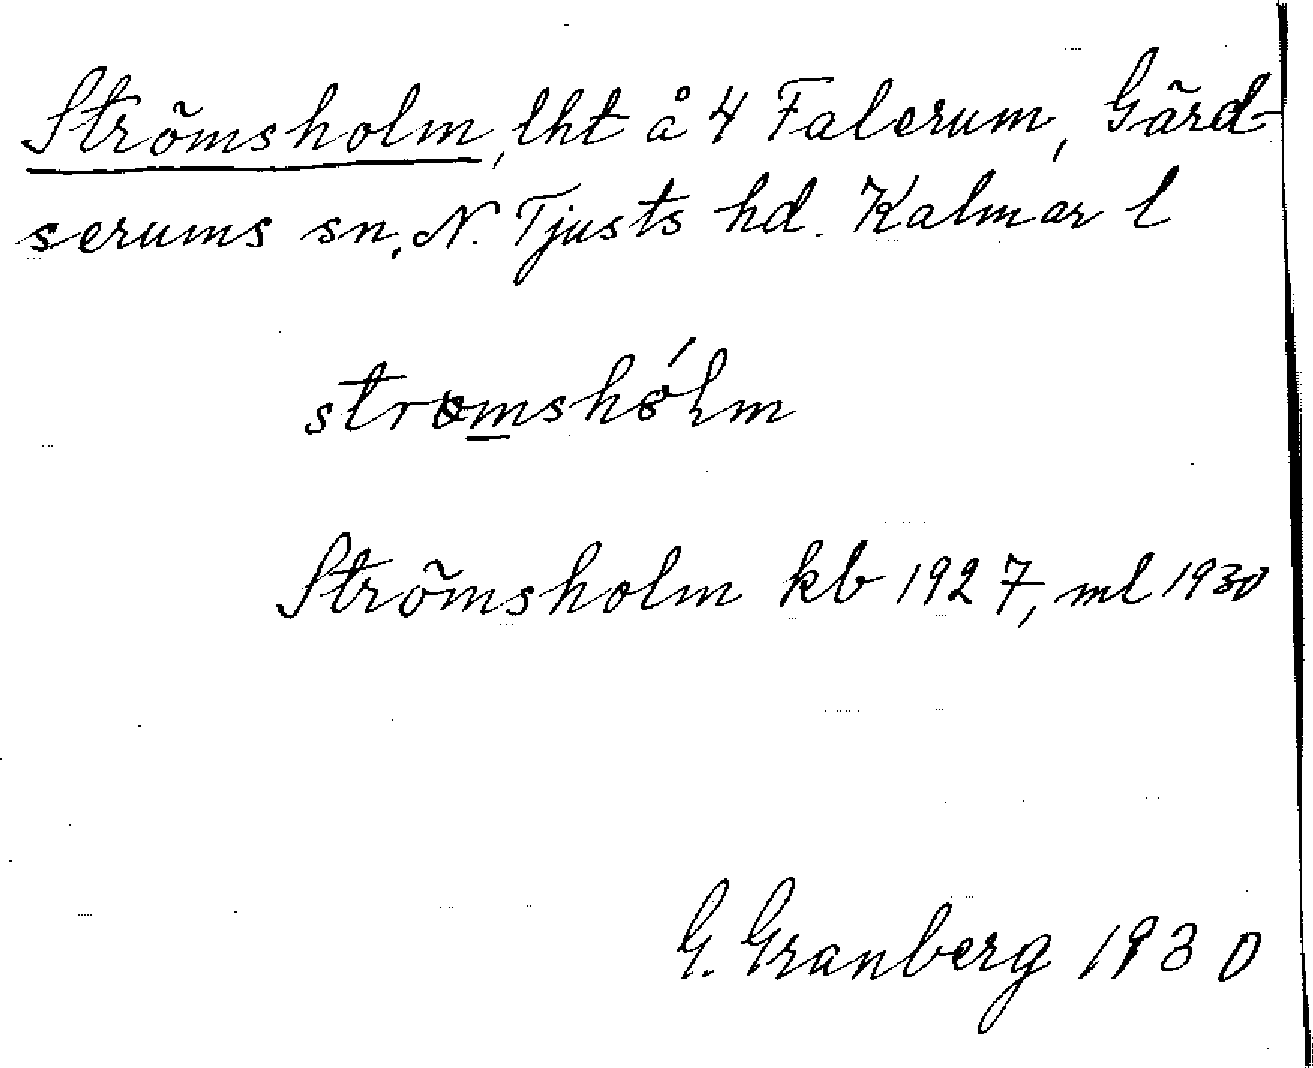 Strömsholm, lht å 4 Falerum, Gärd-
serums sn, N. Tjusts hd. Kalmar l
Strömsholm kb 1927, ml 1930
G. Granberg 1930